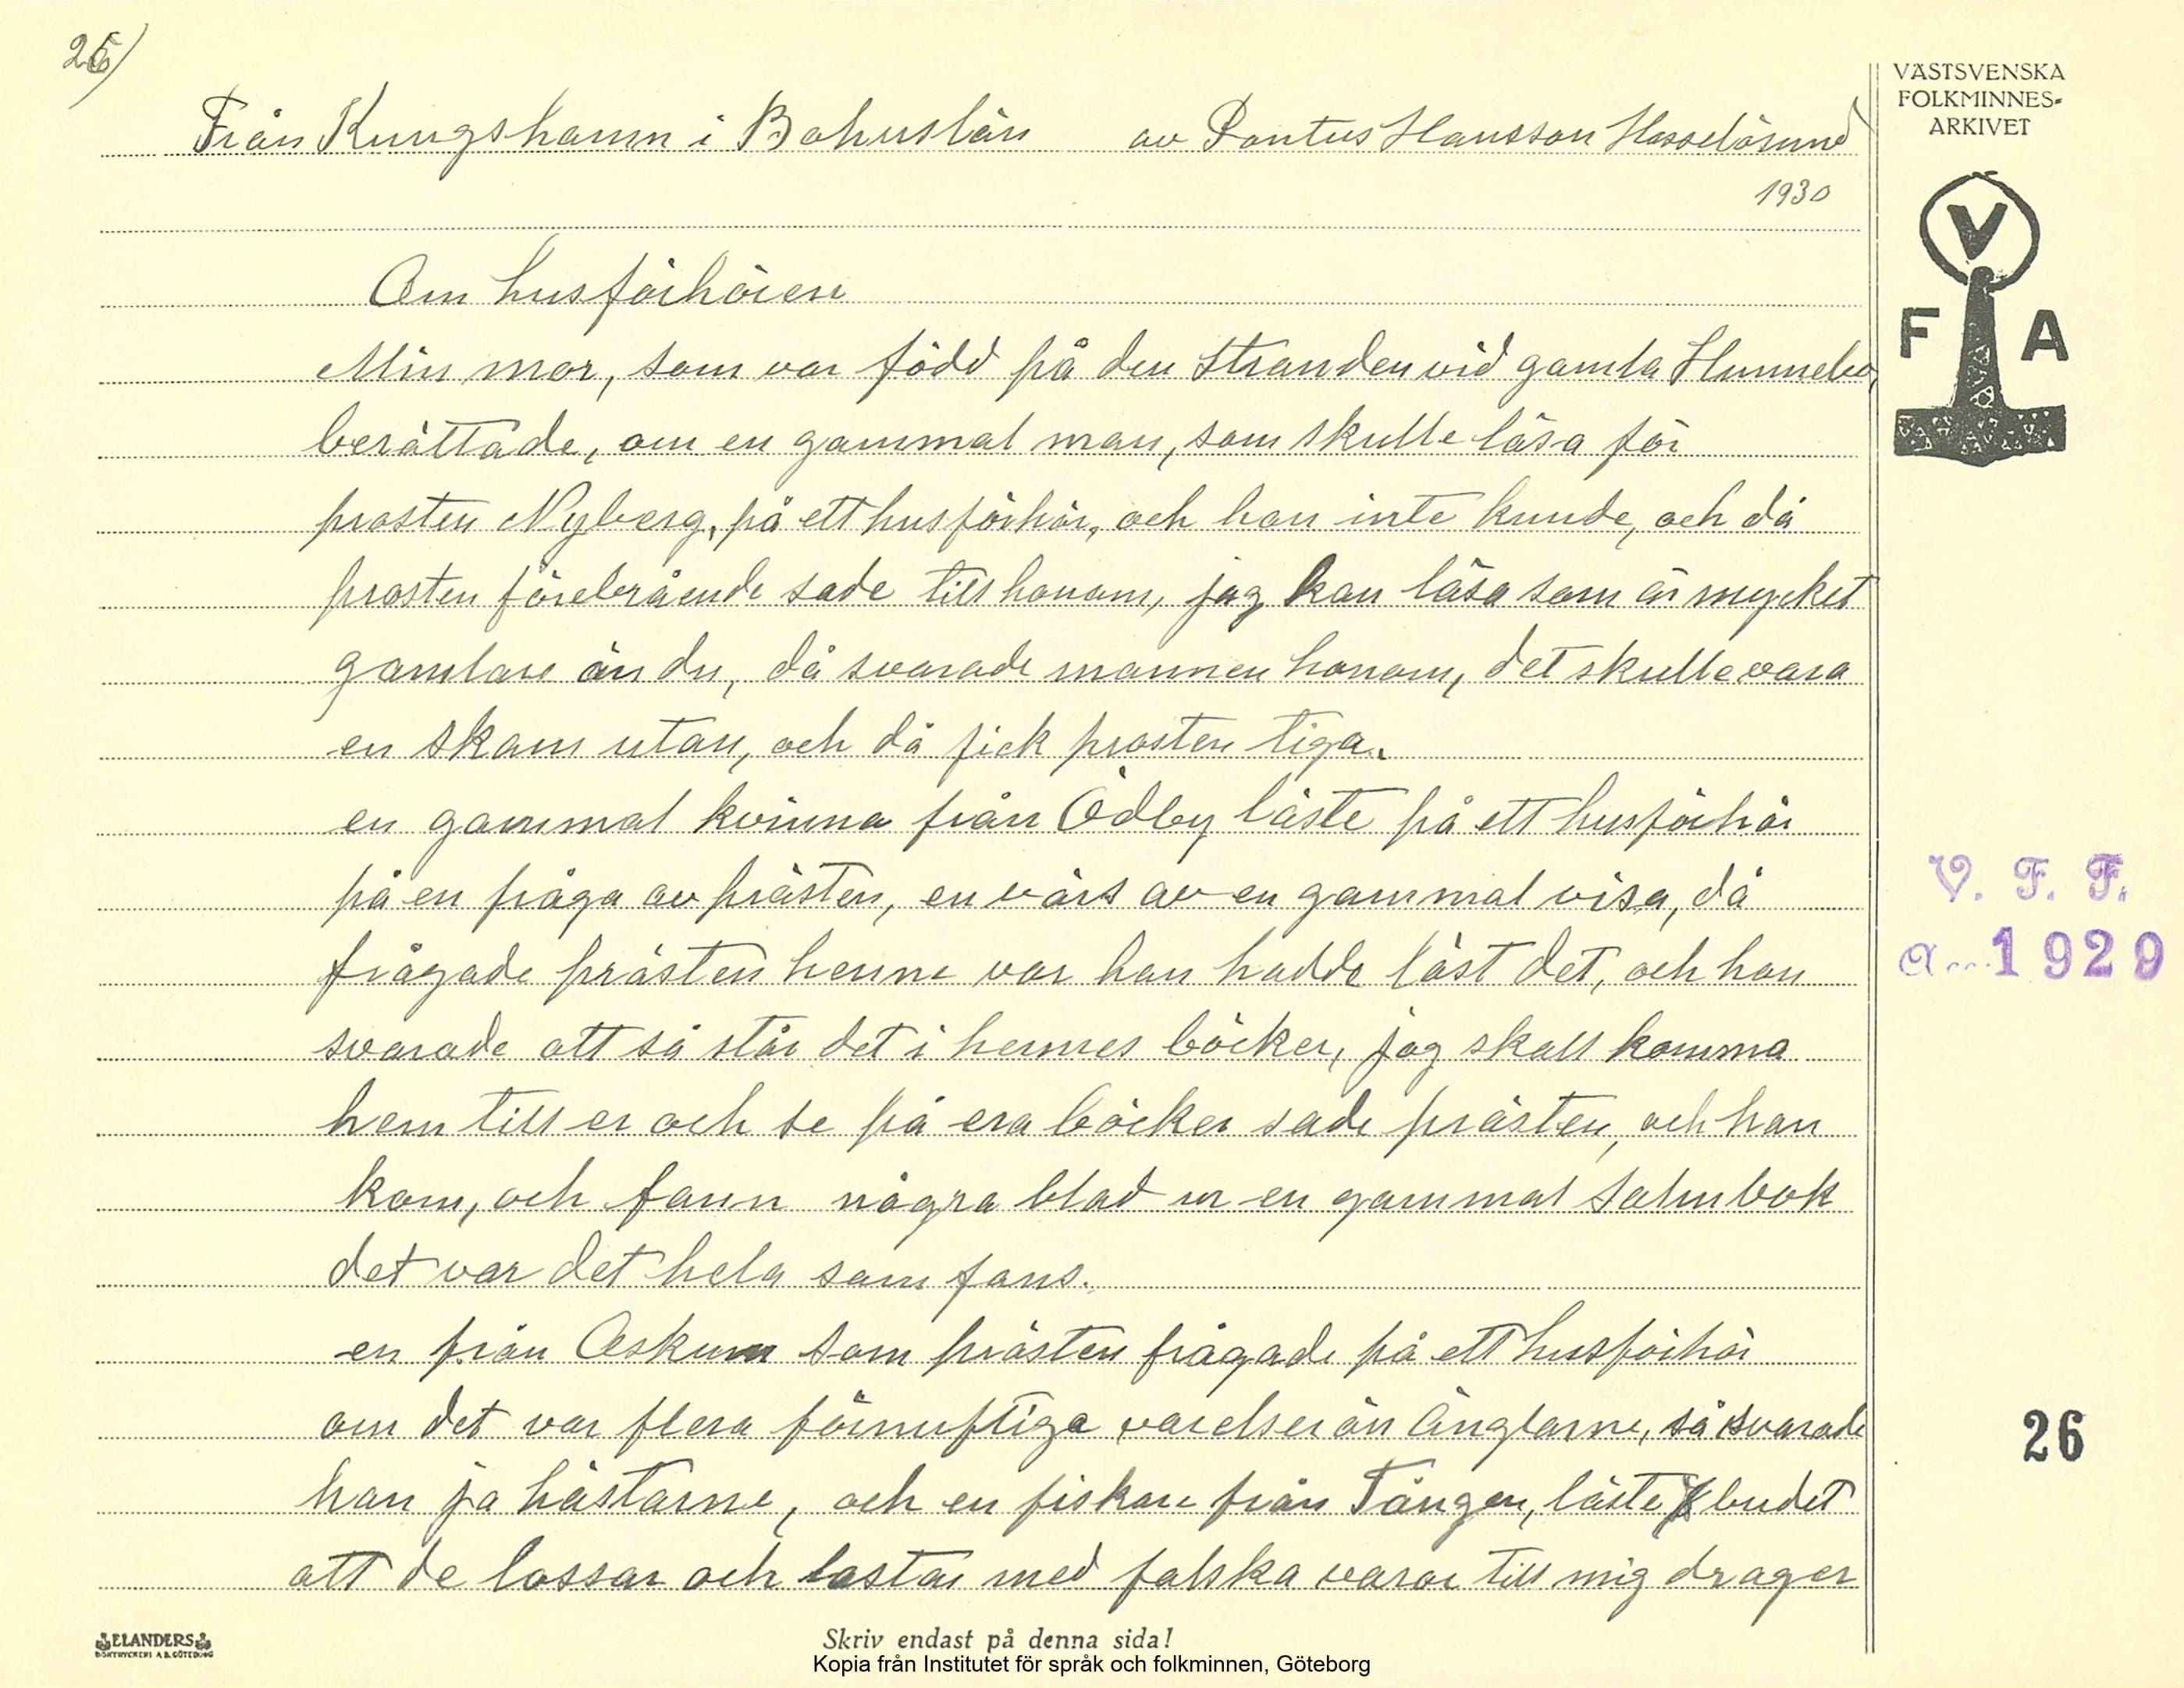 26)
VÄSTSVENSKA
FOLKMINNES-
ARKIVET
Från Kungshamn i Bohuslän av Pontus Hansson Hasselösund
1930
V
F A
Om husförhören
Min mor, som var född på den Stranden vid gamla Hunnebo,
berättade, om en gammal man, som skulle läsa för
prosten Nyberg, på ett husförhör, och han inte kunde, och då
prosten förebrående sade till honom, jag kan läsa som är mycket
gamlare än du, då svarade mannen honom, det skulle vara
en skam utan, och då fick prosten tiga.
en gammal kvinna från Ödby läste på ett husförhör
på en fråga av prästen, en värs av en gammal visa, då
frågade prästen henne var han hadde läst det, och hon
svarade att så står det i hennes böcker, jag skall komma
hem till er och se på era böcker sade prästen, och han
kom, och fann några blad ur en gammal salmbok
det var det hela som fans.
en från Askum som prästen frågade på ett husförhör
om det var flera förnuftiga varelser än Änglarne, så svarade
han ja hästarne, och en fiskare från Tången, läste budet
att de lossar och lastar med falska varor till mig drager
V. F. F.
a 1929
26
ELANDERS
BOKTRYCKERI A.B. GÖTEBORG
Skriv endast på denna sida!
Kopia från Institutet för språk och folkminnen, Göteborg